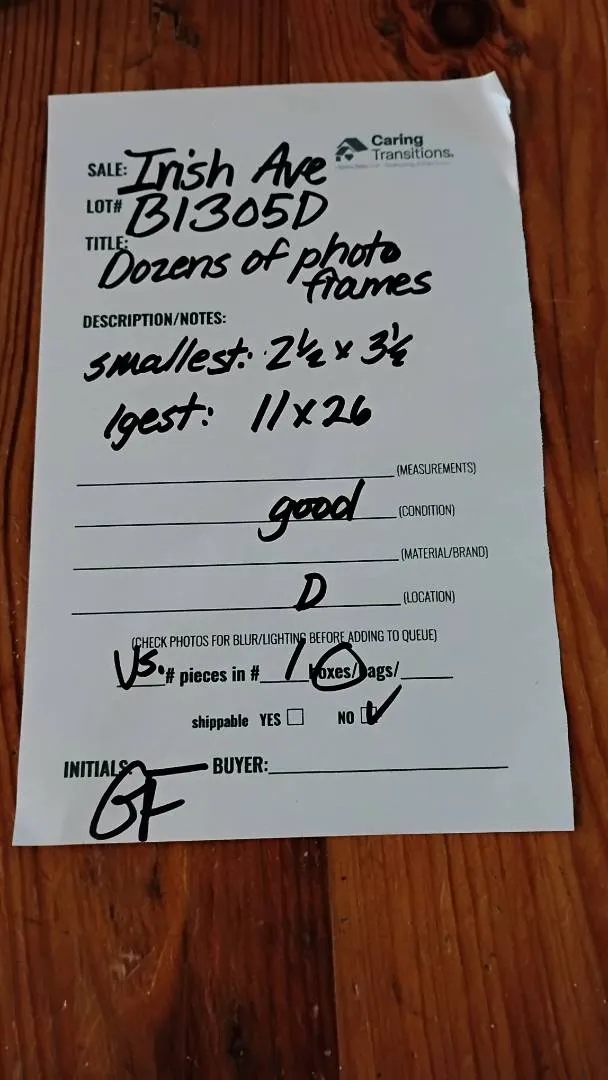 Caring
Transitions®
SALE: Irish Ave
LOT# B1305D
TITLE: Dozens of photo
frames
DESCRIPTION/NOTES:
smallest: 2½ x 3½
lgest: 11 x 26
(MEASUREMENTS)
good (CONDITION)
(MATERIAL/BRAND)
D (LOCATION)
(CHECK PHOTOS FOR BLUR/LIGHTING BEFORE ADDING TO QUEUE)
Vs. # pieces in # 1 boxes/bags/
shippable YES ☐ NO ☑
INITIALS: GF BUYER: